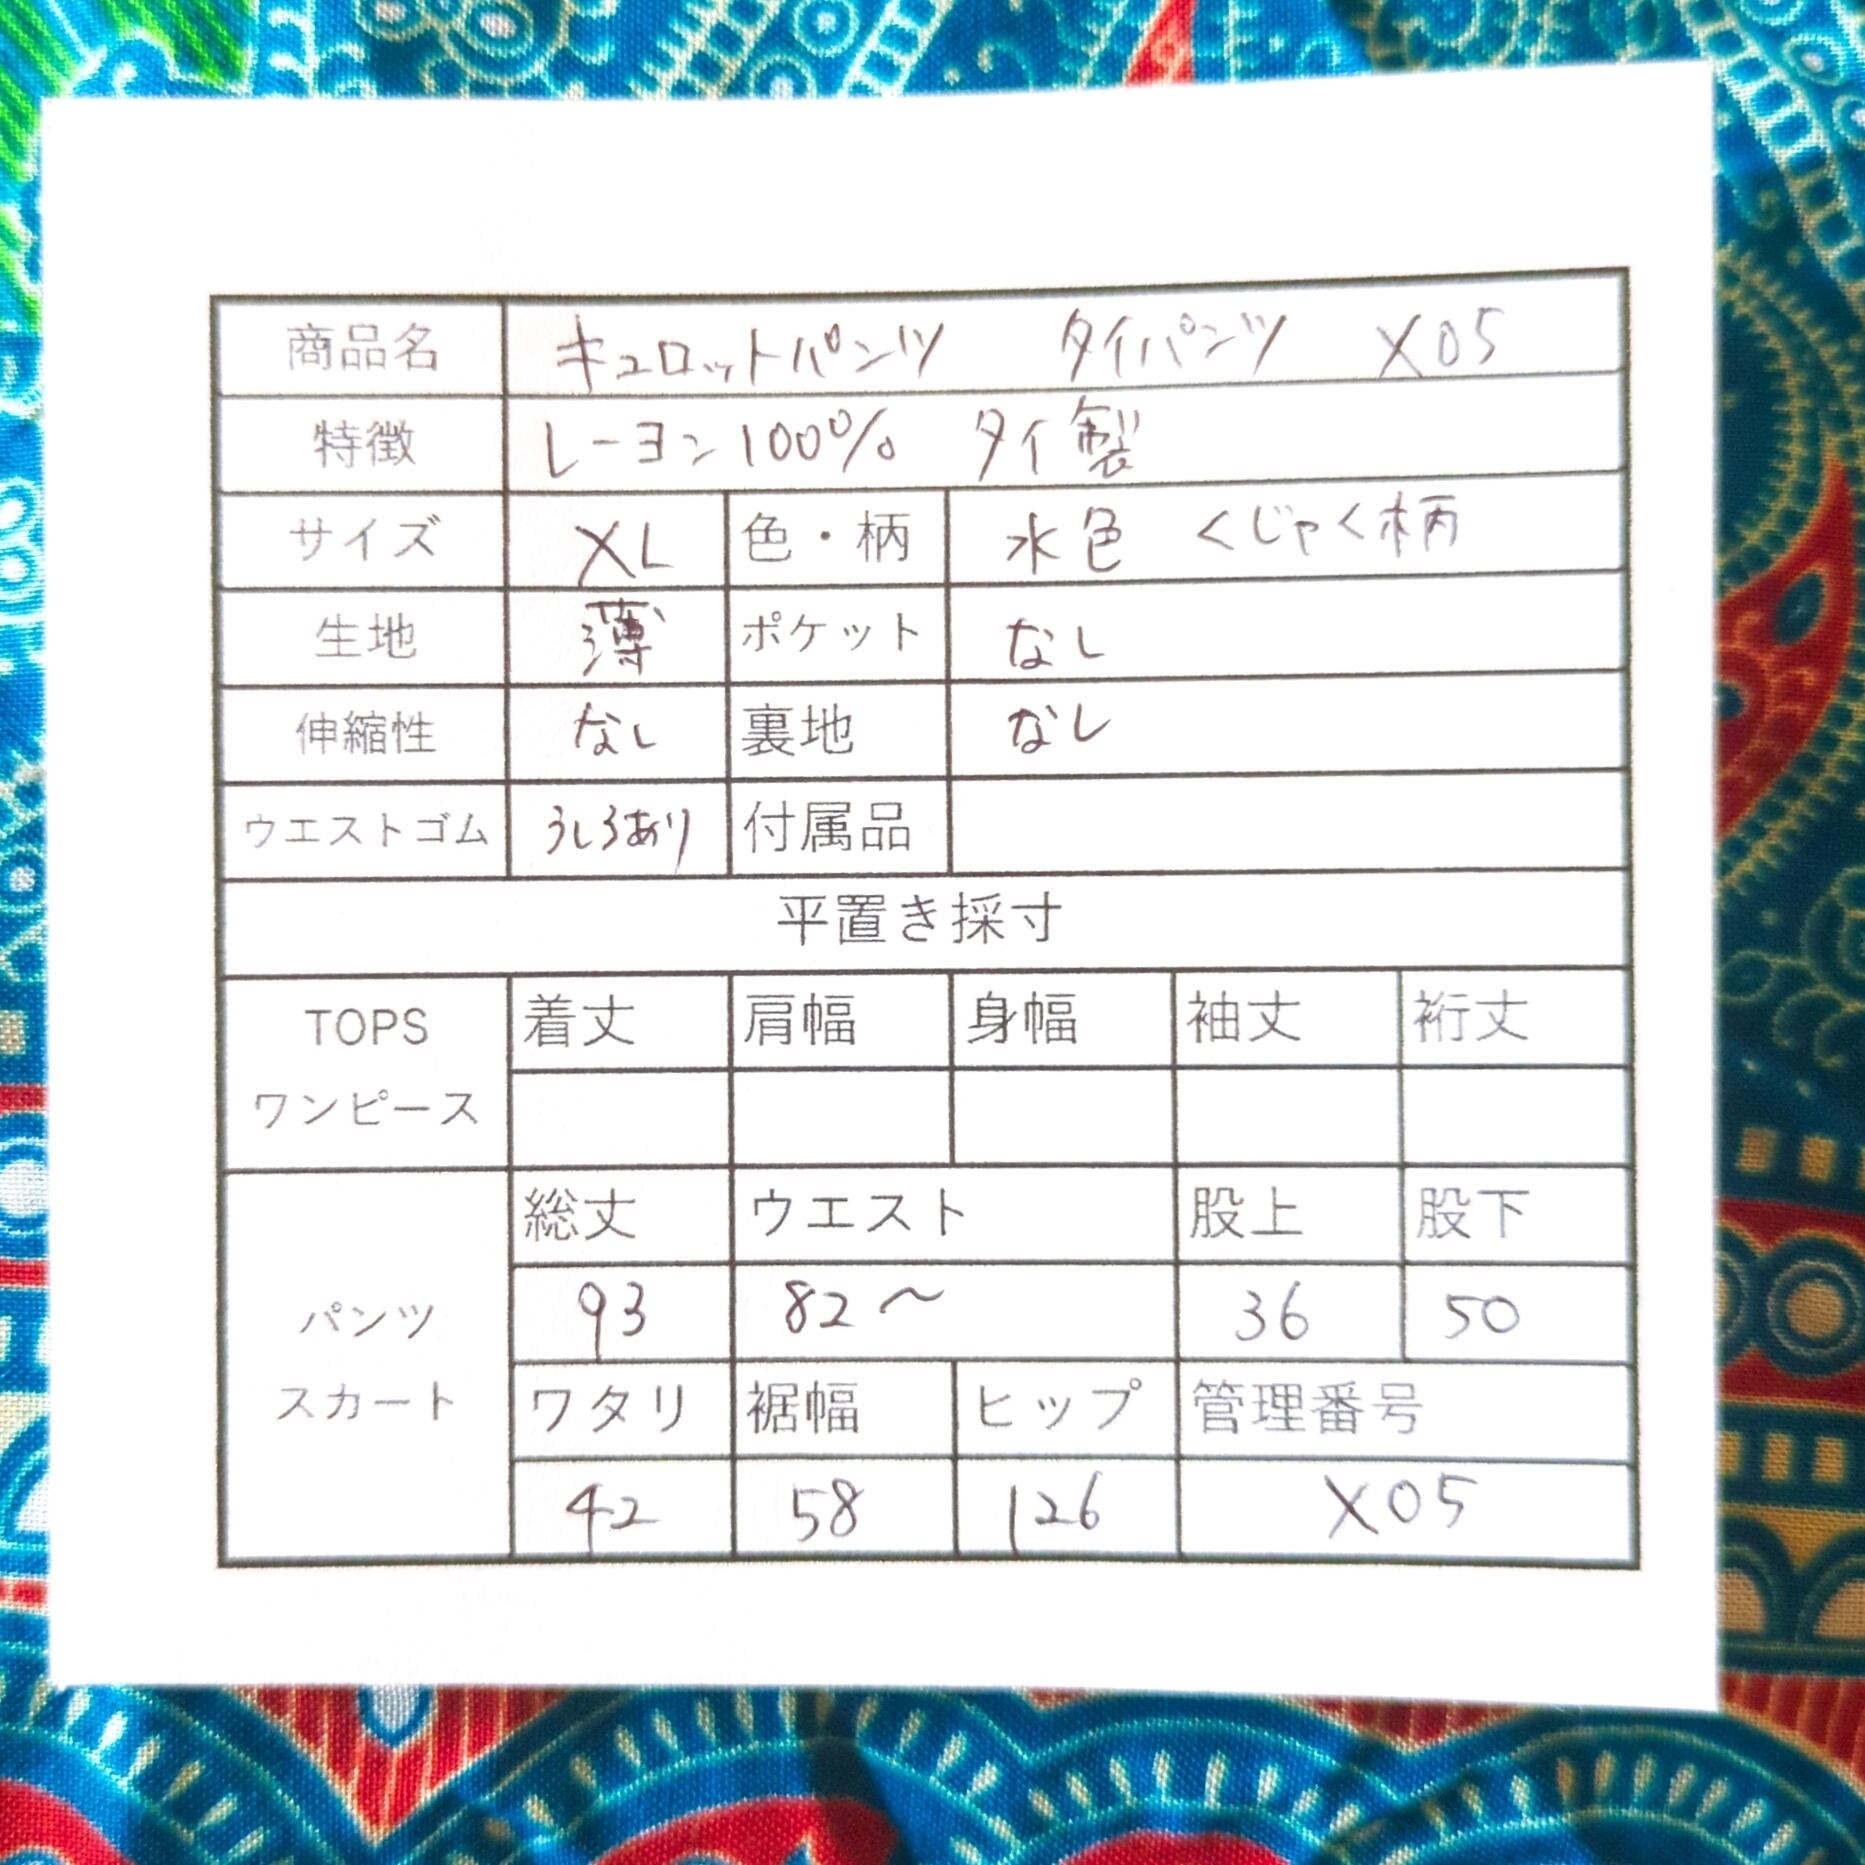 商品名 キュロットパンツ タイパンツ X05
特徴 レーヨン100% タイ製
サイズ XL 色・柄 水色 くじゃく柄
生地 薄 ポケット なし
伸縮性 なし 裏地 なし
ウエストゴム うしろあり 付属品
平置き採寸
TOPS ワンピース 着丈 肩幅 身幅 袖丈 裄丈
パンツ スカート 総丈 ウエスト 股上 股下
93 82〜 36 50
ワタリ 裾幅 ヒップ 管理番号
42 58 126 X05